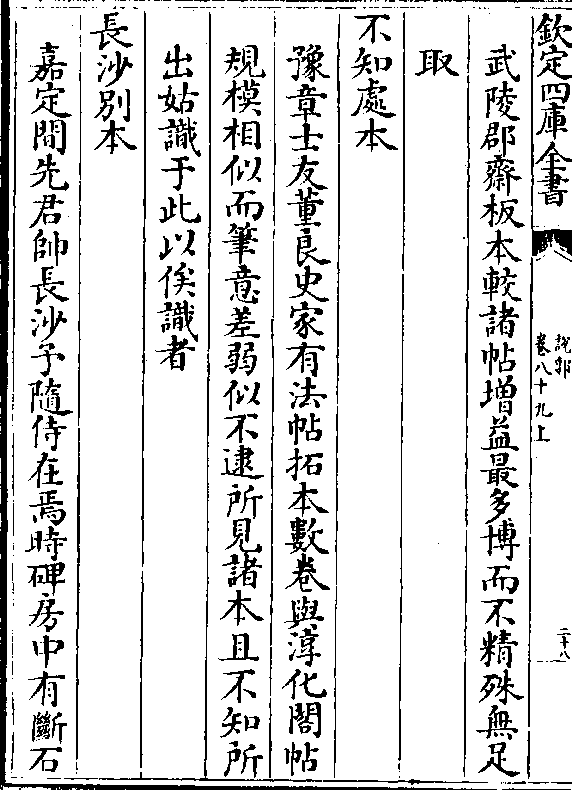 欽定四庫全書
說郛
卷八十九上
二十八
武陵郡齋板本較諸帖增益最多博而不精殊無足
取
不知處本
豫章士友董良史家有法帖拓本數卷與淳化閣帖
規模相似而筆意差弱似不逮所見諸本且不知所
出姑識于此以俟識者
長沙別本
嘉定間先君帥長沙予隨侍在焉時碑房中有斷石